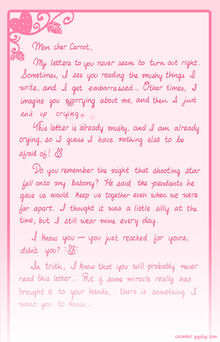 Mon cher Carrot,
My letters to you never seem to turn out right.
Sometimes, I see you reading the mushy things I
write, and I get embarrassed... Other times, I
imagine you worrying about me, and then I just
end up crying.
This letter is already mushy, and I am already
crying, so I guess I have nothing else to be
afraid of!
Do you remember the night that shooting star
fell onto my balcony? He said the pendants he
gave us would keep us together even when we were
far apart. I thought it was a little silly at the
time, but I still wear mine every day.
I know you — you just reached for yours,
didn't you?
In truth, I know that you will probably never
read this letter... But if some miracle really has
brought it to your hands, there is something I
want you to know...